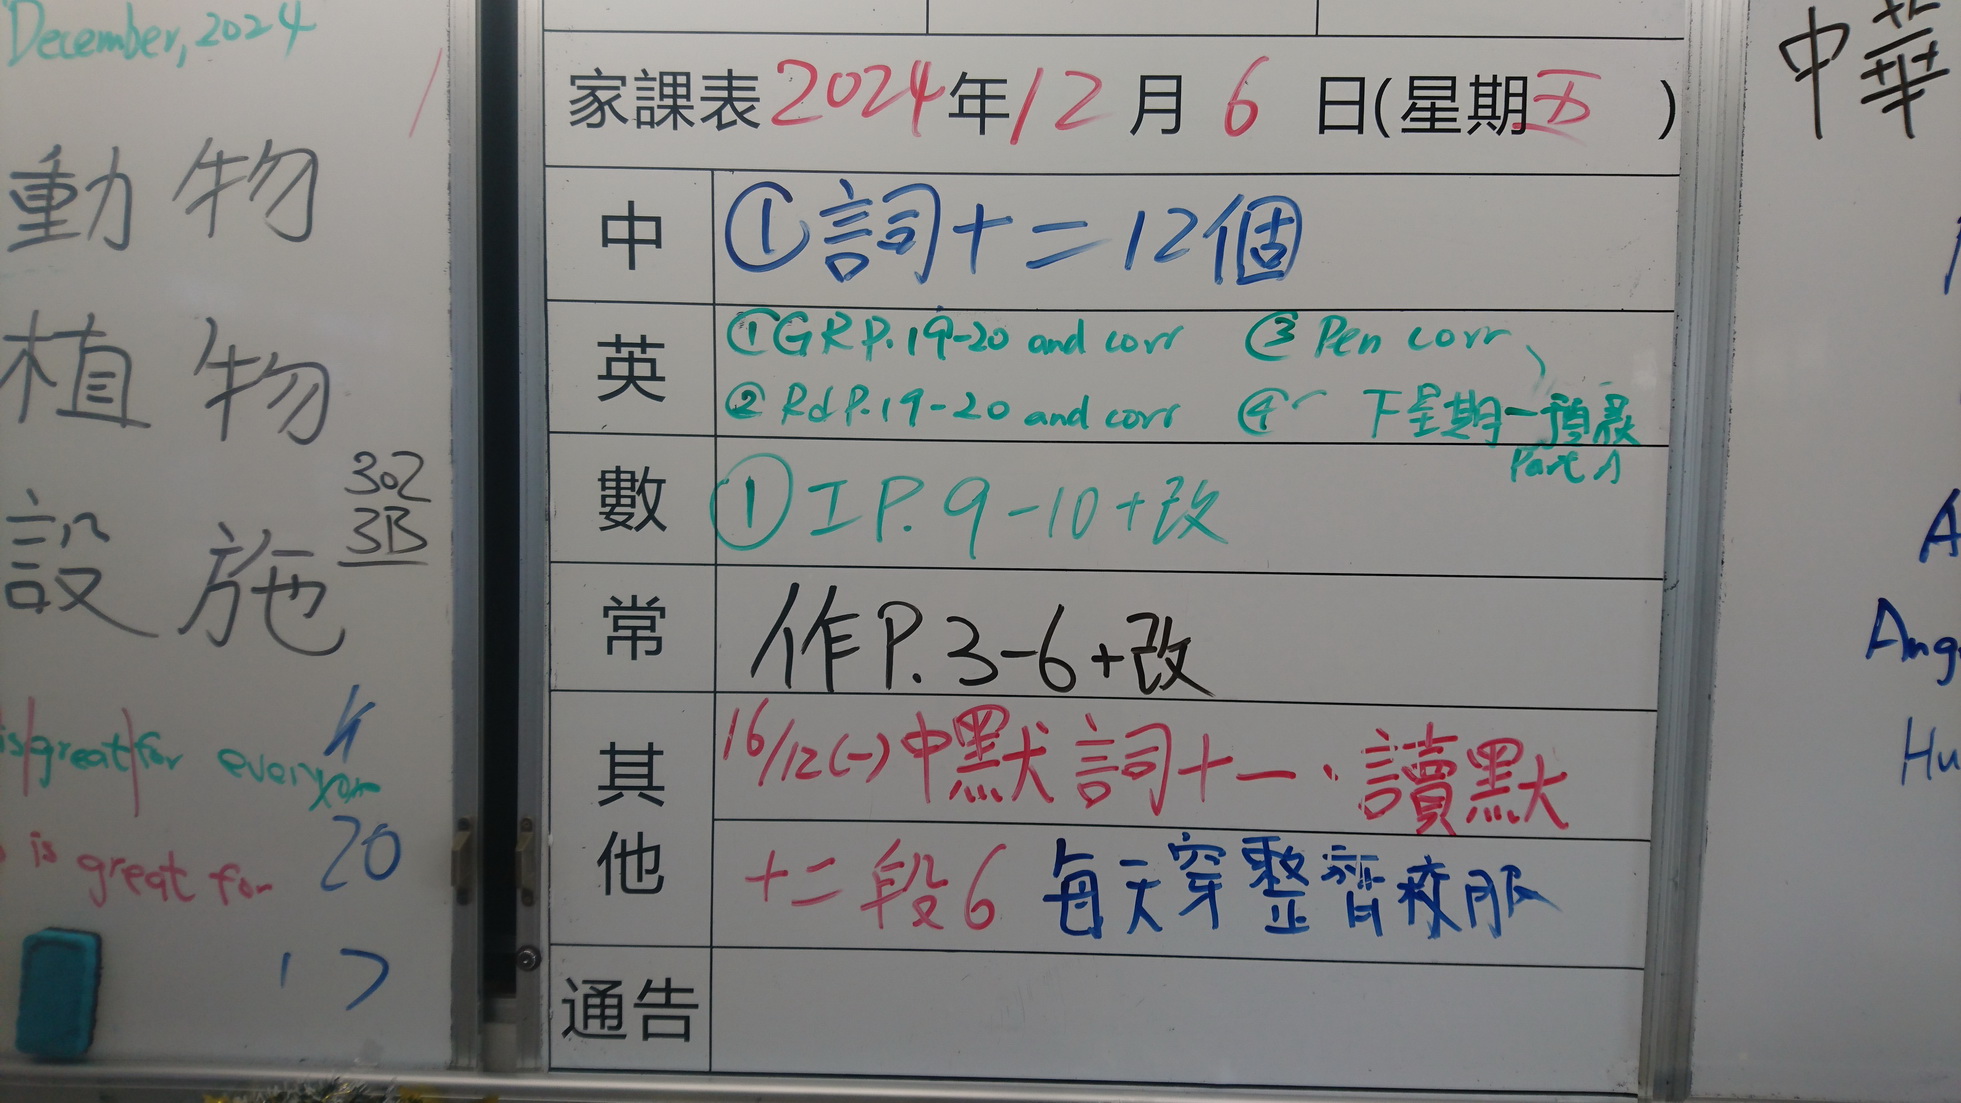 December, 2024
動物
植物
設施
302
3B
is great for everyone
20
is great for
家課表2024年12月6日(星期五)
中 ①詞十二12個
英 ①GR P.19-20 and corr ③Pen corr
②Rd P.19-20 and corr ④ 下星期一預默
Part A
數 ①工P.9-10+改
常 作P.3-6+改
其他 16/12(一)中默詞十一、讀默
十二段6 每天穿整齊校服
通告
中華
A
Ang
Hu